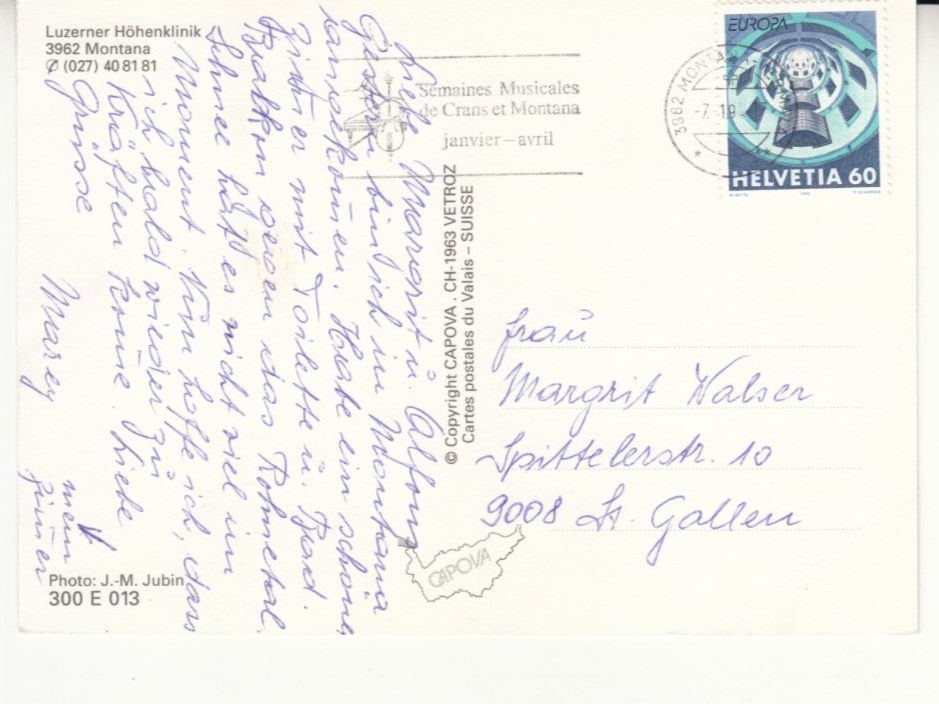 Luzerner Höhenklinik
3962 Montana
✆ (027) 40 81 81
Semaines Musicales
de Crans et Montana
janvier – avril
3962 MONTANA
-7.-1.9
EUROPA
HELVETIA 60
Liebe Margrit u. Alfons
Gestern bin ich in Montana
angekomen. Habe ein schönes
Zimer mit Toilette u. Bad.
Balkon gegen das Rohnetal.
Schnee hat es nicht viel im
Moment. Nun hoffe ich, dass
ich bald wieder zu
Kräften kome. Liebe
Grüsse
mein
Zimer
© Copyright CAPOVA . CH-1963 VETROZ
Cartes postales du Valais – SUISSE
Frau
Margrit Walser
Spittelerstr. 10
9008 St. Gallen
CAPOVA
Photo: J.-M. Jubin
300 E 013